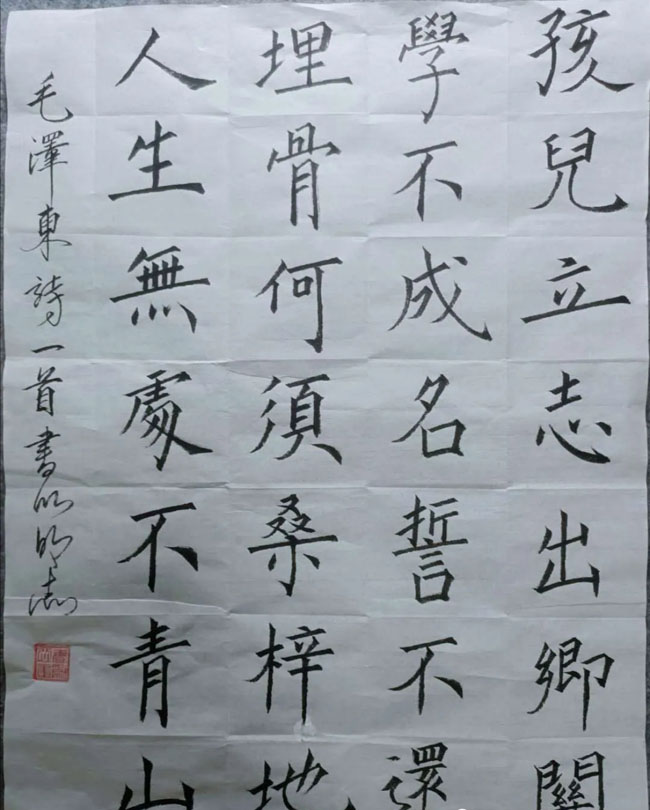 孩兒立志出鄉關
學不成名誓不還
埋骨何須桑梓地
人生無處不青山
毛澤東詩一首書以明志